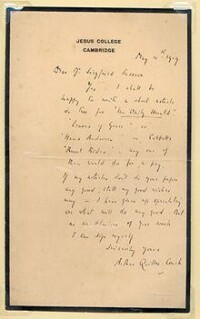 JESUS COLLEGE
CAMBRIDGE
May 4th 1919
Dear Mr Siegfried Sassoon
Yes. I shall be
happy to write a short article
or two for "The Daily Herald"
"Leaves of Grass" : or
"Hans Andersen" : or Cobbett's
"Rural Rides" : any one of
them would do for a peg.
If my articles don't do your paper
any good, still my good wishes
may — I have given up speculating
on what will do any good. But
as an admirer of your work
I can sign myself
Sincerely yours
Arthur Quiller-Couch